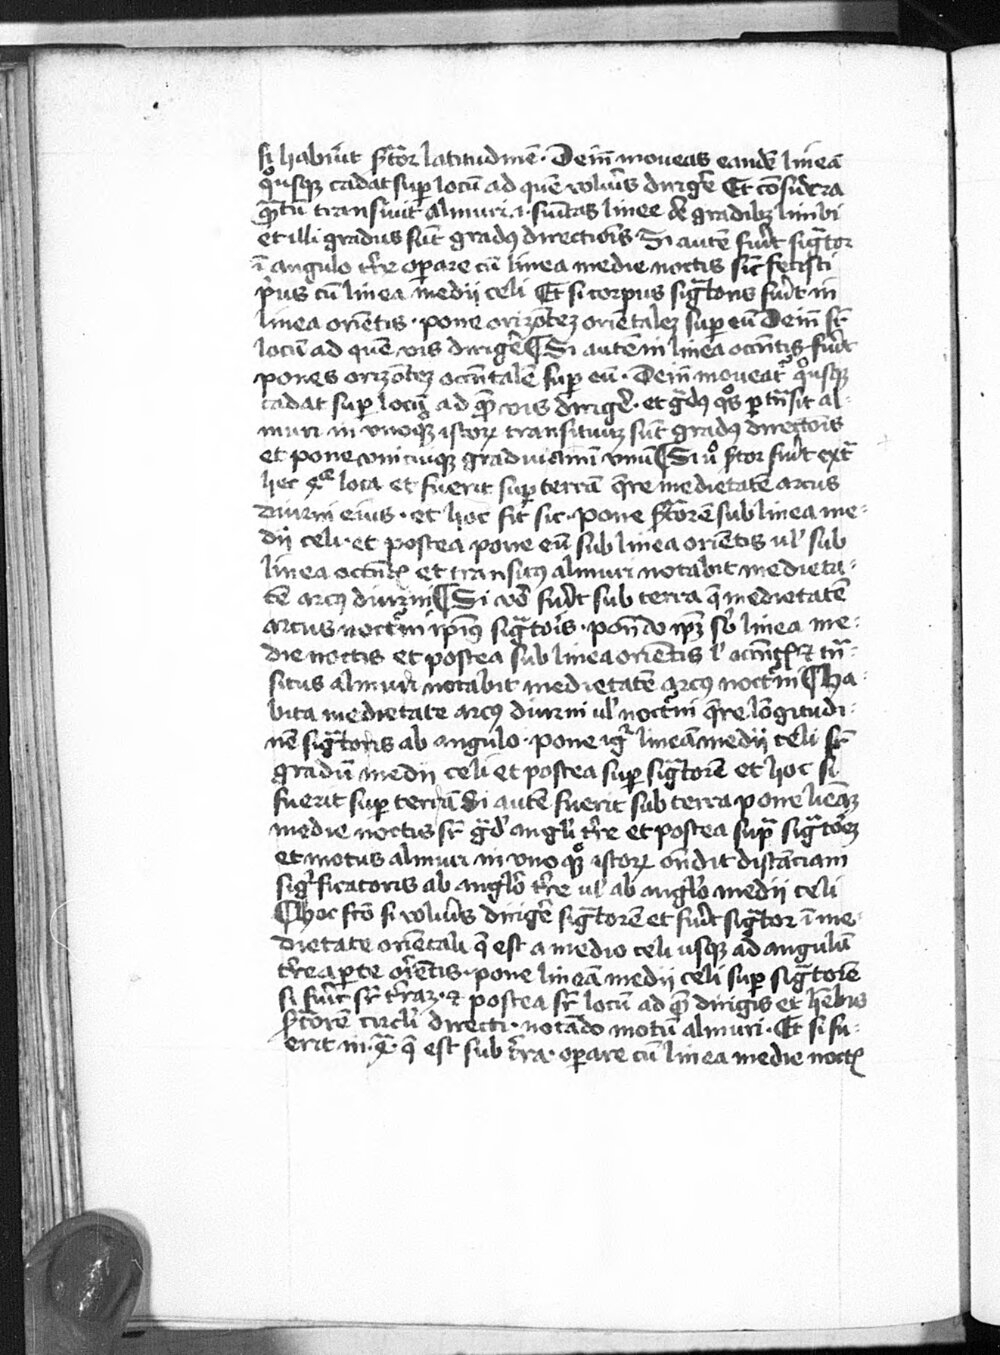 si habuerit sig̅tor latitudinē. Dein̄ moveas eandē lineā
quousqꝫ cadat suꝑ locū ad quē volueris dirigere Et considera
q̄ntū transivit almuri i. summitas linee de gradibꝫ limbi
et illi gradus sūt gradus directiōis Si autē fuerit sig̅tor
ī angulo t̄re oꝑare cū linea medie noctis sic̄ fecisti
prius cū linea medii celi Et si corpus sig̅toris fuerit in
linea orientis. pone orizōtē orientalē suꝑ eū Dein̄ suꝑ
locū ad quē vis dirigere ¶ Si autē in linea occn̄tis fuerit
pones orizōtē occn̄talē suꝑ eū. Dein̄ moveat̄ quousqꝫ
cadat suꝑ locū ad quē vis dirigere. et gradus quos ꝑtransit al-
muri in unoqꝫ istorꝫ transituū sūt gradus directōis
et pone unicuiqꝫ graduī annū unū ¶ Si vero sig̅tor fuerit extra
hec loca et fuerit suꝑ terrā quere medietatē arcus
diurni eius. et hoc fit sic. pone sig̅torē sub linea me-
dii celi. et postea pone eū sub linea orientis vl̄ sub
linea occn̄tis et transitus almuri notabit medieta-
tē arcus diurni ¶ Si vero fuerit sub terra quere medietatē
arcus nocturni ipsius sig̅toris. ponēdo ipsū sub linea me-
die noctis et postea sub linea orientis l̄ occn̄tis et tran-
situs almuri notabit medietatē arcus nocturni ¶ Ha-
bita medietate arcus diurni vl̄ nocturni quere longitudi-
nē sig̅toris ab angulo. pone igitur lineā medii celi suꝑ
gradū medii celi et postea suꝑ sig̅torē et hoc si
fuerit suꝑ terrā Si autē fuerit sub terra pone lineā
medie noctis suꝑ gradū anguli t̄re et postea supra sig̅torē
et motus almuri in uno quoqꝫ istorꝫ ondit distanciam
significatoris ab angulo t̄re vl̄ ab angulo medii celi
¶ Hoc fc̄o si volueris dirigere sig̅torē et fuerit sig̅tor ī me-
dietate orientali que est a medio celi usque ad angulū
t̄re a parte orientis. pone lineā medii celi suꝑ sig̅torē
si fuerit suꝑ terrā. et postea suꝑ locū ad quē dirigis et habebis
circuli directi. notādo motū almuri. Et si fu-
erit in que est sub terra. oꝑare cū linea medie noctis